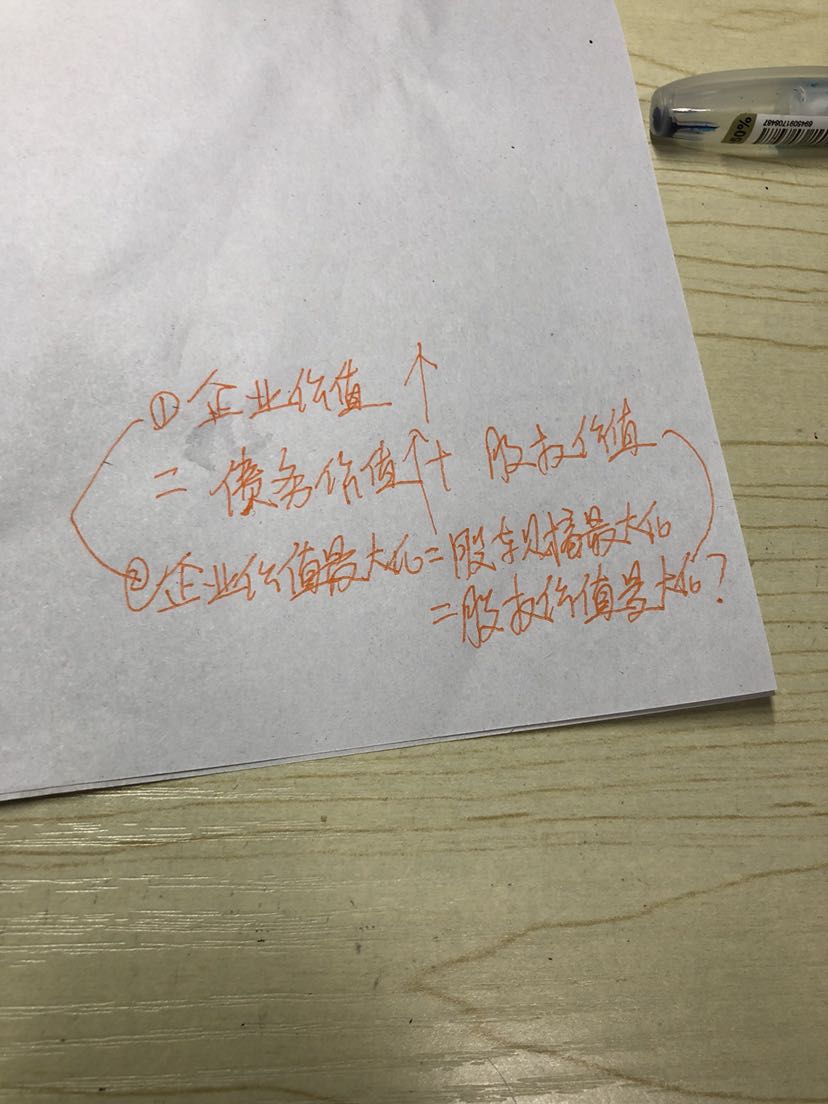 ①企业价值↑
=债务价值↑+股权价值
②企业价值最大化=股东财富最大化
=股权价值最大化?
50%
6945091708487